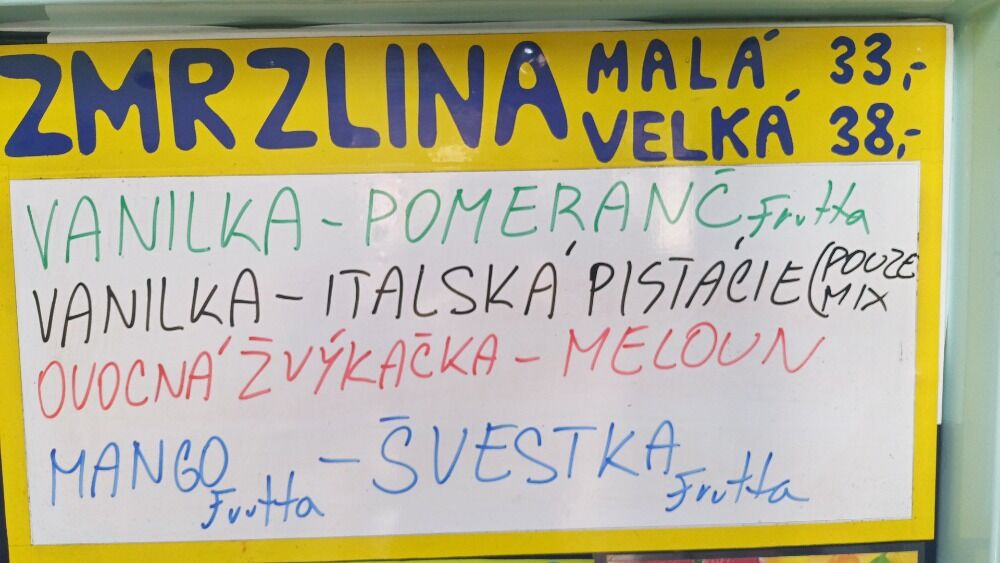 ZMRZLINA MALÁ 33,-
VELKÁ 38,-
VANILKA - POMERANČ Frutta
VANILKA - ITALSKÁ PISTÁCIE (POUZE
MIX
OVOCNÁ ŽVÝKAČKA - MELOUN
MANGO Frutta - ŠVESTKA Frutta